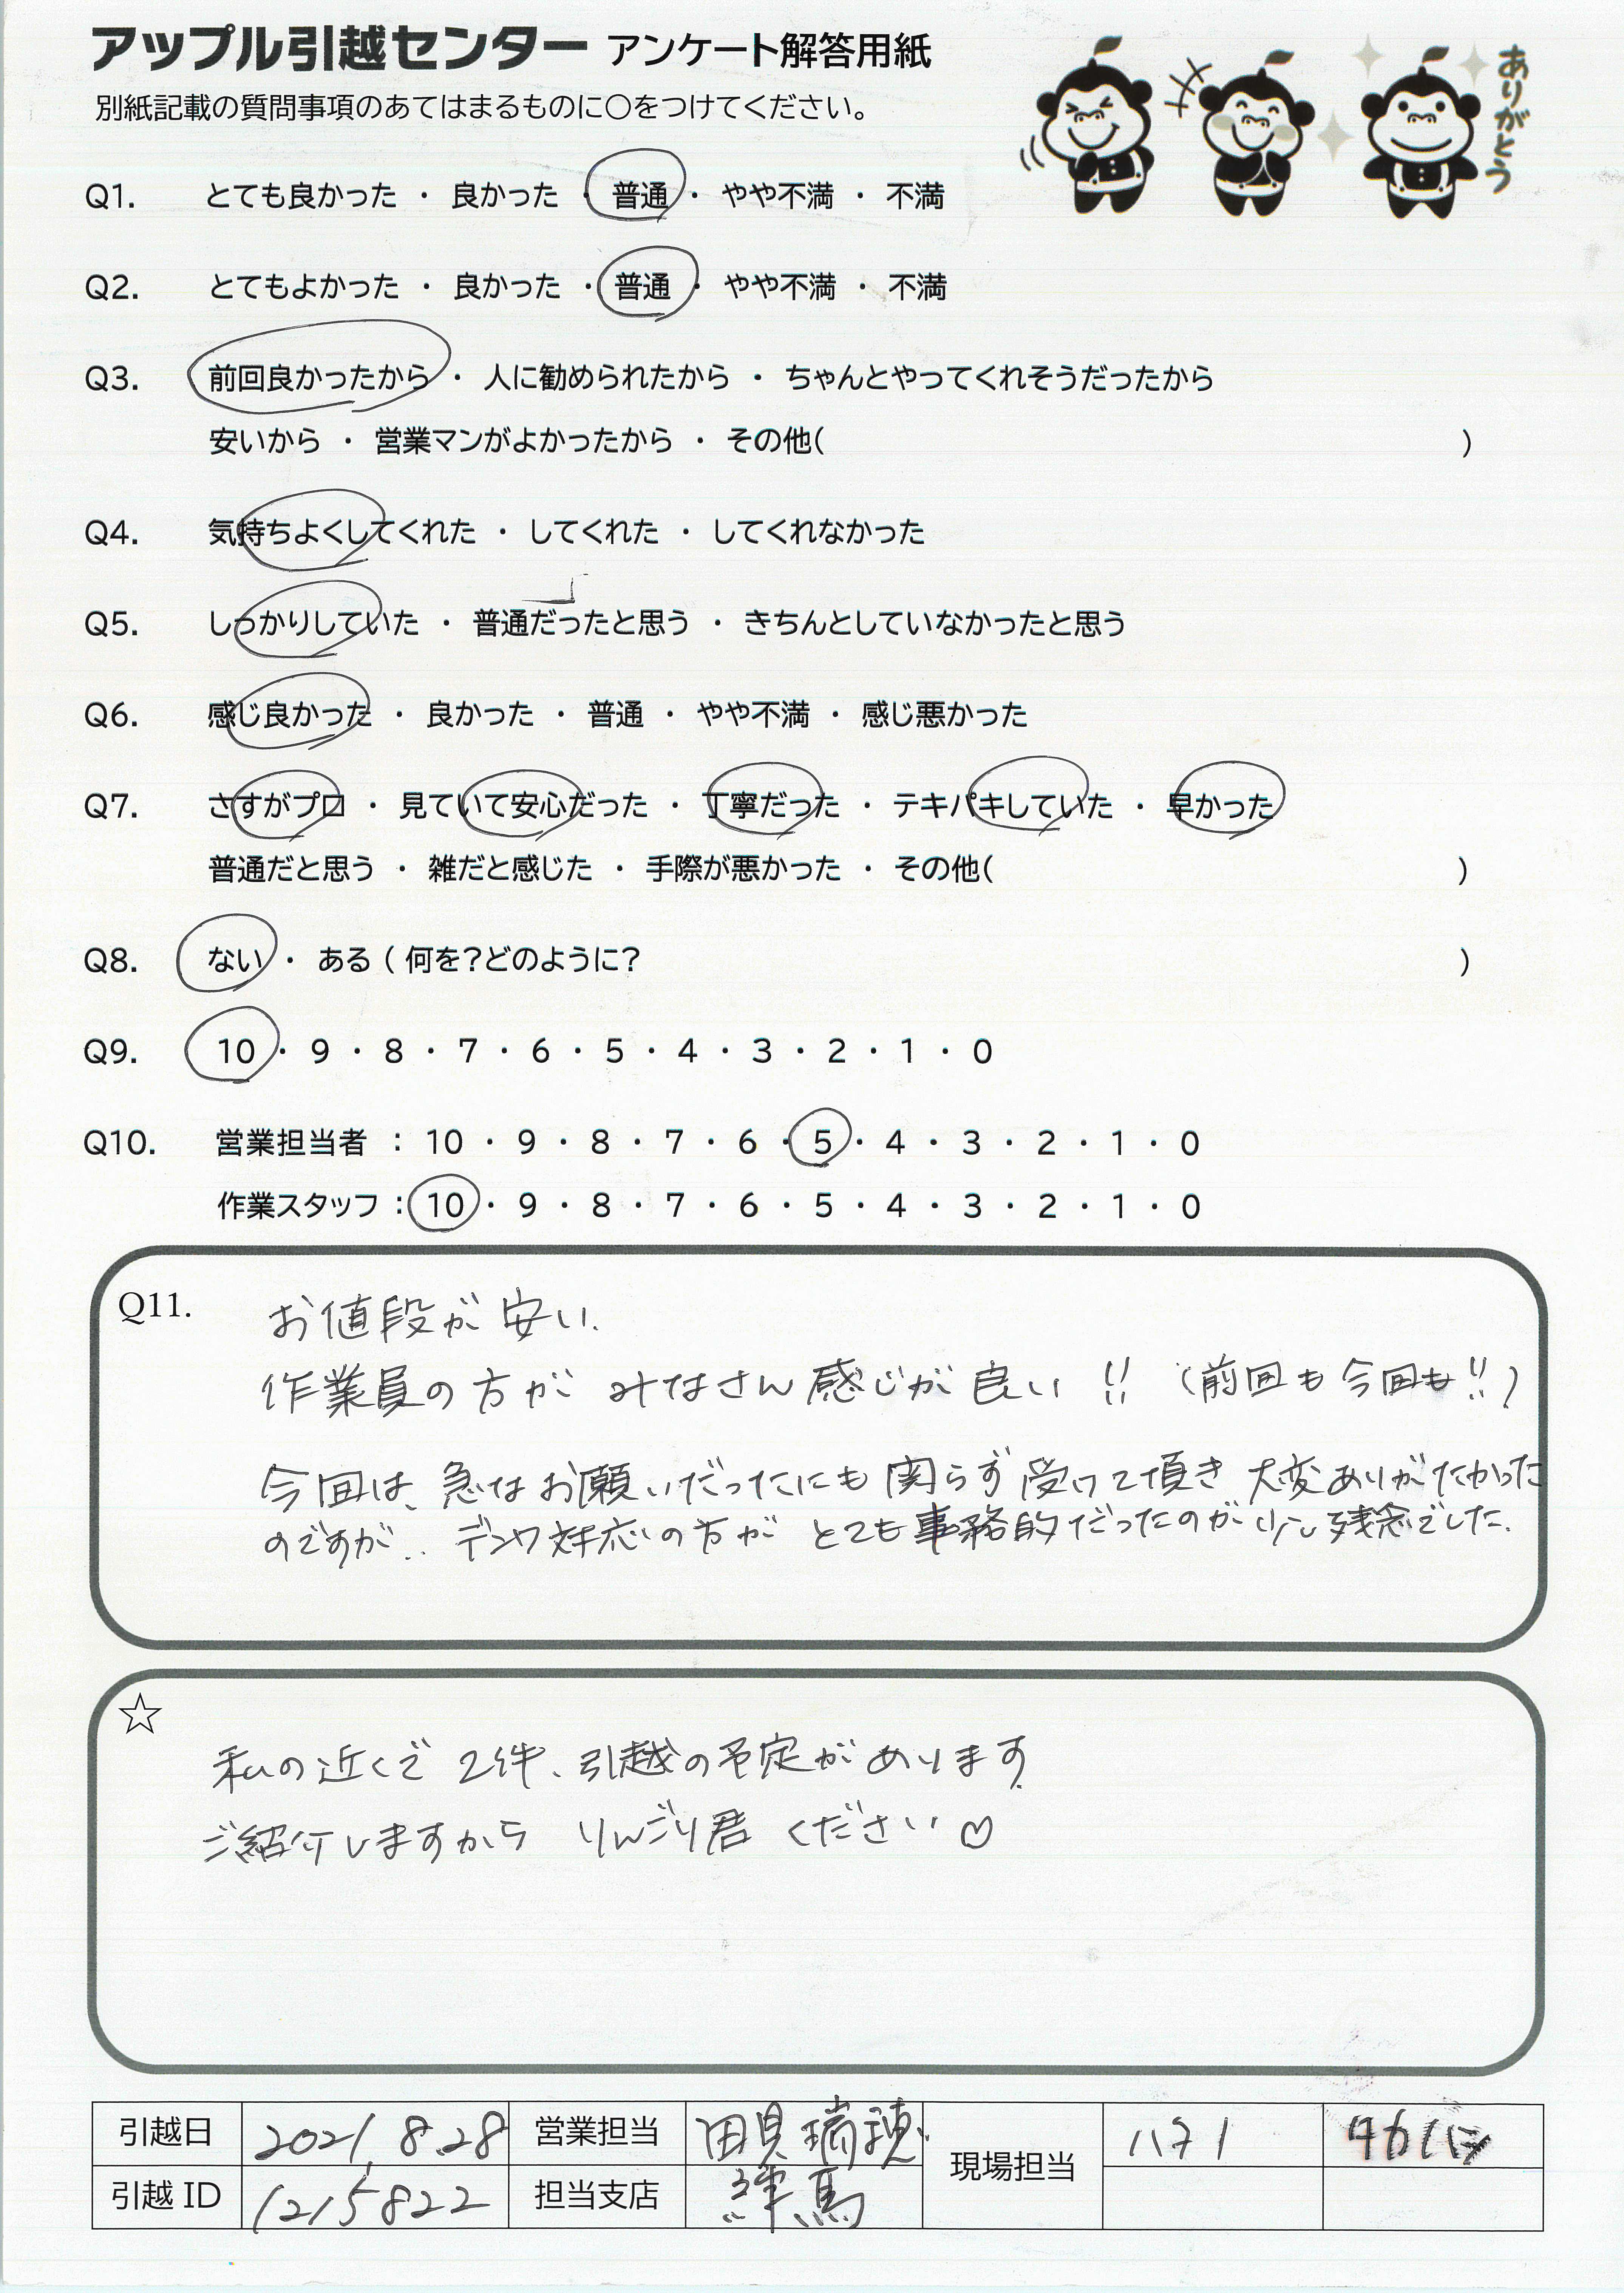 アップル引越センター アンケート解答用紙
別紙記載の質問事項のあてはまるものに○をつけてください。
ありがとう
Q1. とても良かった ・ 良かった ・ 普通 ・ やや不満 ・ 不満
Q2. とてもよかった ・ 良かった ・ 普通 ・ やや不満 ・ 不満
Q3. 前回良かったから ・ 人に勧められたから ・ ちゃんとやってくれそうだったから
安いから ・ 営業マンがよかったから ・ その他( )
Q4. 気持ちよくしてくれた ・ してくれた ・ してくれなかった
Q5. しっかりしていた ・ 普通だったと思う ・ きちんとしていなかったと思う
Q6. 感じ良かった ・ 良かった ・ 普通 ・ やや不満 ・ 感じ悪かった
Q7. さすがプロ ・ 見ていて安心だった ・ 丁寧だった ・ テキパキしていた ・ 早かった
普通だと思う ・ 雑だと感じた ・ 手際が悪かった ・ その他( )
Q8. ない ・ ある ( 何を?どのように? )
Q9. 10 ・ 9 ・ 8 ・ 7 ・ 6 ・ 5 ・ 4 ・ 3 ・ 2 ・ 1 ・ 0
Q10. 営業担当者 : 10 ・ 9 ・ 8 ・ 7 ・ 6 ・ 5 ・ 4 ・ 3 ・ 2 ・ 1 ・ 0
作業スタッフ : 10 ・ 9 ・ 8 ・ 7 ・ 6 ・ 5 ・ 4 ・ 3 ・ 2 ・ 1 ・ 0
Q11. お値段が安い.
作業員の方が みなさん感じが良い!! (前回も今回も!!)
今回は、急なお願いだったにも関らず受けて頂き 大変ありがたかった
のですが.. デンワ対応の方が とても事務的だったのが少し残念でした.
☆
私の近くで 2件、引越の予定があります
ご紹介しますから りんごり君 ください♡
引越日 2021,8.28 営業担当 田貝瑞穂 現場担当
引越 ID 1215822 担当支店 練馬